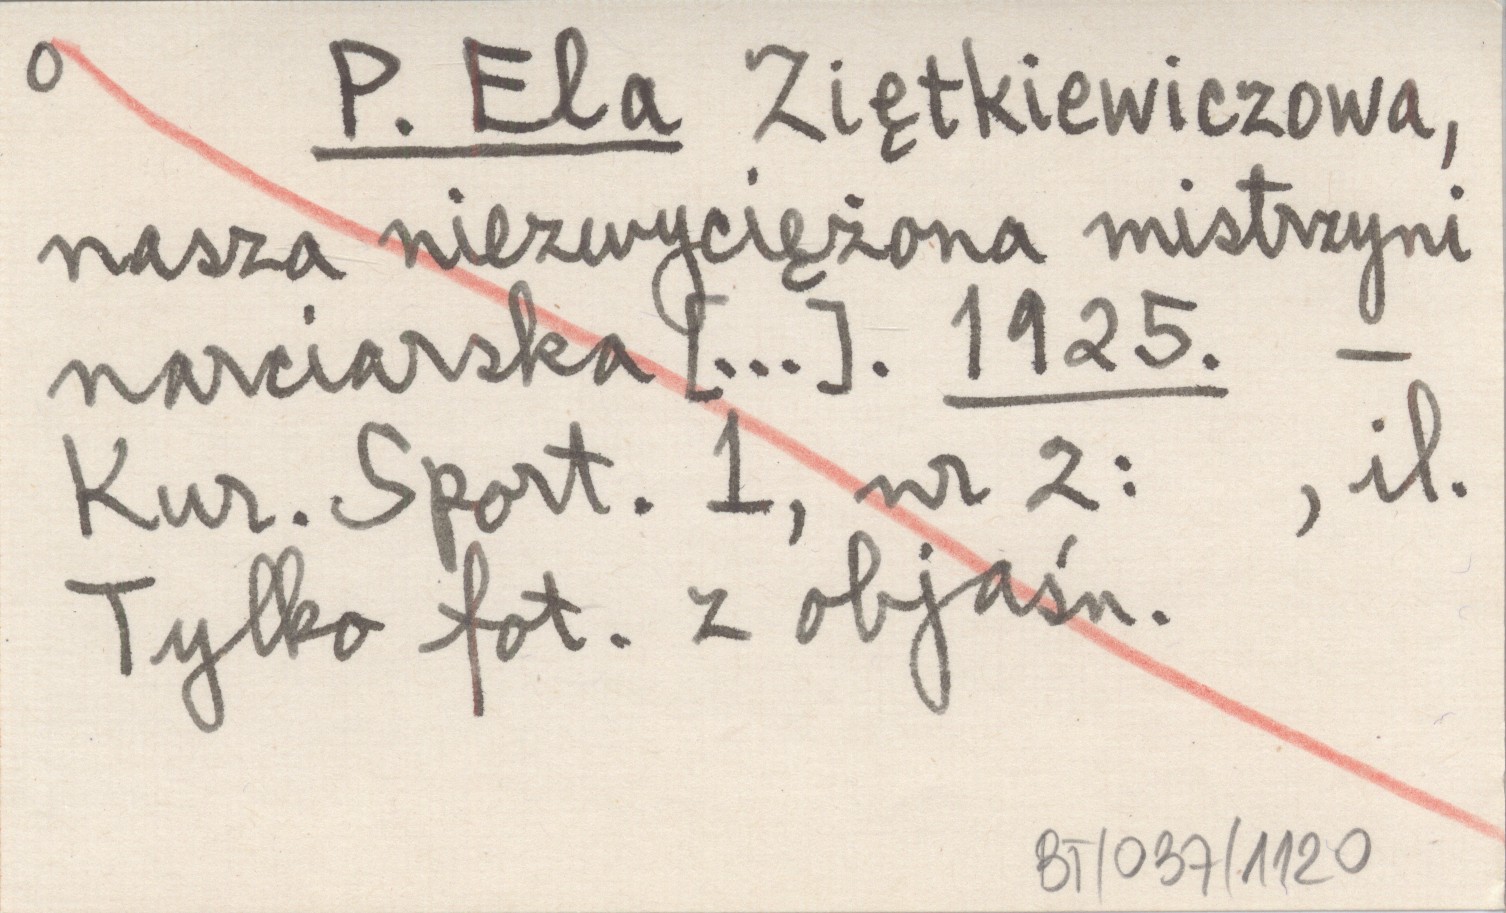 o P. Ela Ziętkiewiczowa,
nasza niezwyciężona mistrzyni
narciarska [...]. 1925. —
Kur. Sport. 1, nr 2: , il.
Tylko fot. z objaśn.
BT/037/1120